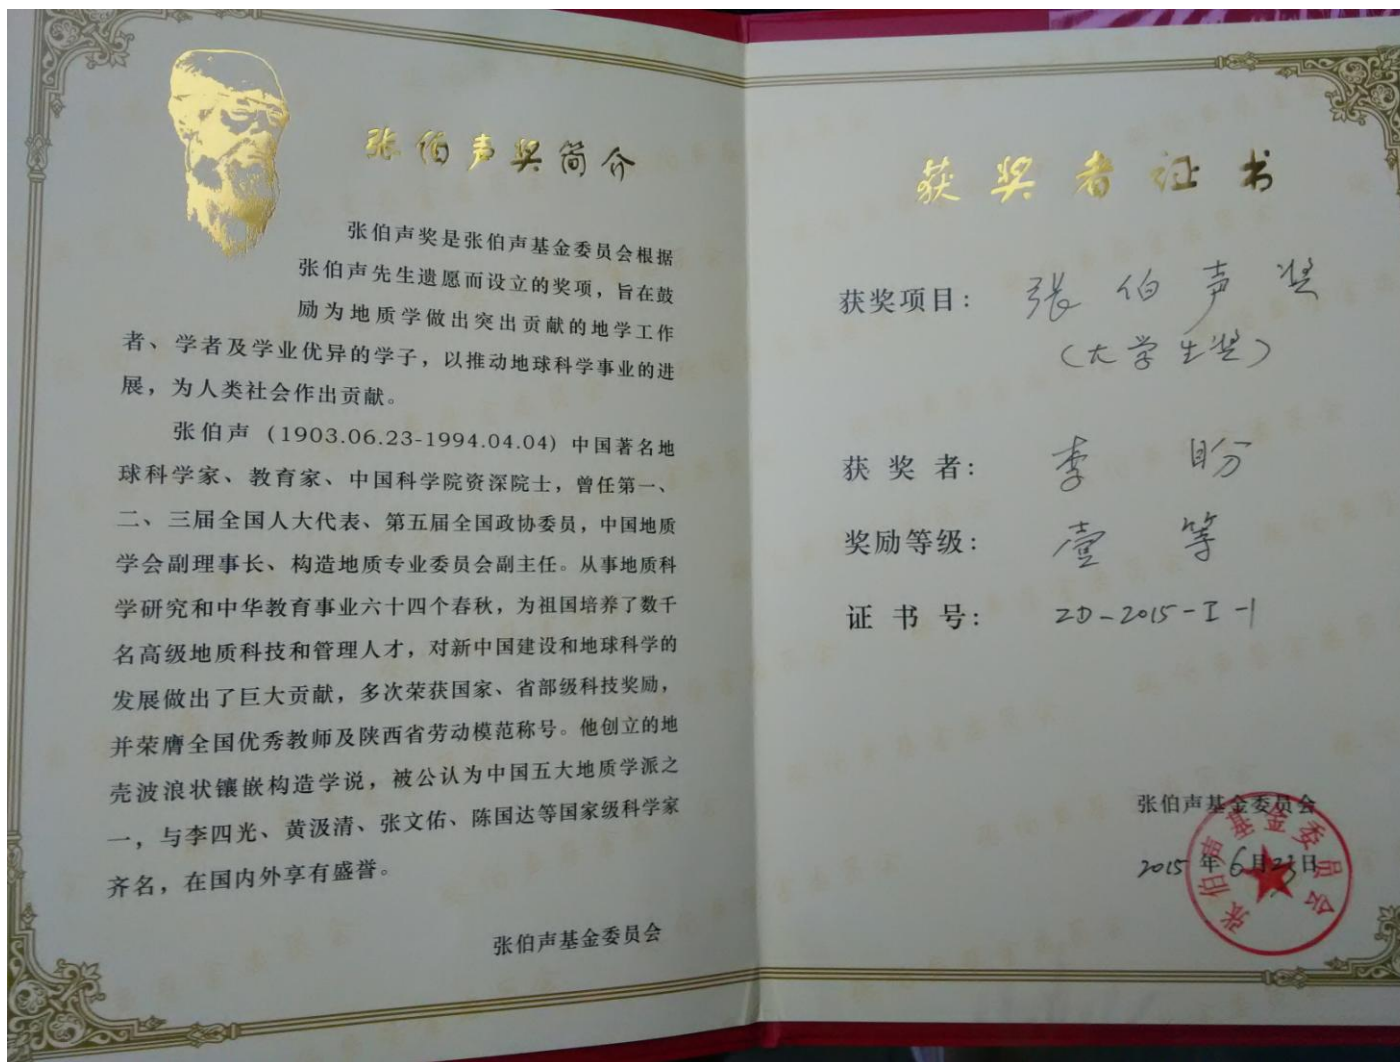 张伯声奖简介
张伯声奖是张伯声基金委员会根据
张伯声先生遗愿而设立的奖项，旨在鼓
励为地质学做出突出贡献的地学工作
者、学者及学业优异的学子，以推动地球科学事业的进
展，为人类社会作出贡献。
张伯声（1903.06.23-1994.04.04）中国著名地
球科学家、教育家、中国科学院资深院士，曾任第一、
二、三届全国人大代表、第五届全国政协委员，中国地质
学会副理事长、构造地质专业委员会副主任。从事地质科
学研究和中华教育事业六十四个春秋，为祖国培养了数千
名高级地质科技和管理人才，对新中国建设和地球科学的
发展做出了巨大贡献，多次荣获国家、省部级科技奖励，
并荣膺全国优秀教师及陕西省劳动模范称号。他创立的地
壳波浪状镶嵌构造学说，被公认为中国五大地质学派之
一，与李四光、黄汲清、张文佑、陈国达等国家级科学家
齐名，在国内外享有盛誉。
张伯声基金委员会
获奖者证书
获奖项目：張伯声奖
（大学生奖）
获奖者：李盼
奖励等级：壹等
证书号：ZD-2015-I-1
张伯声基金委员会
2015年6月23日
张伯声基金委员会